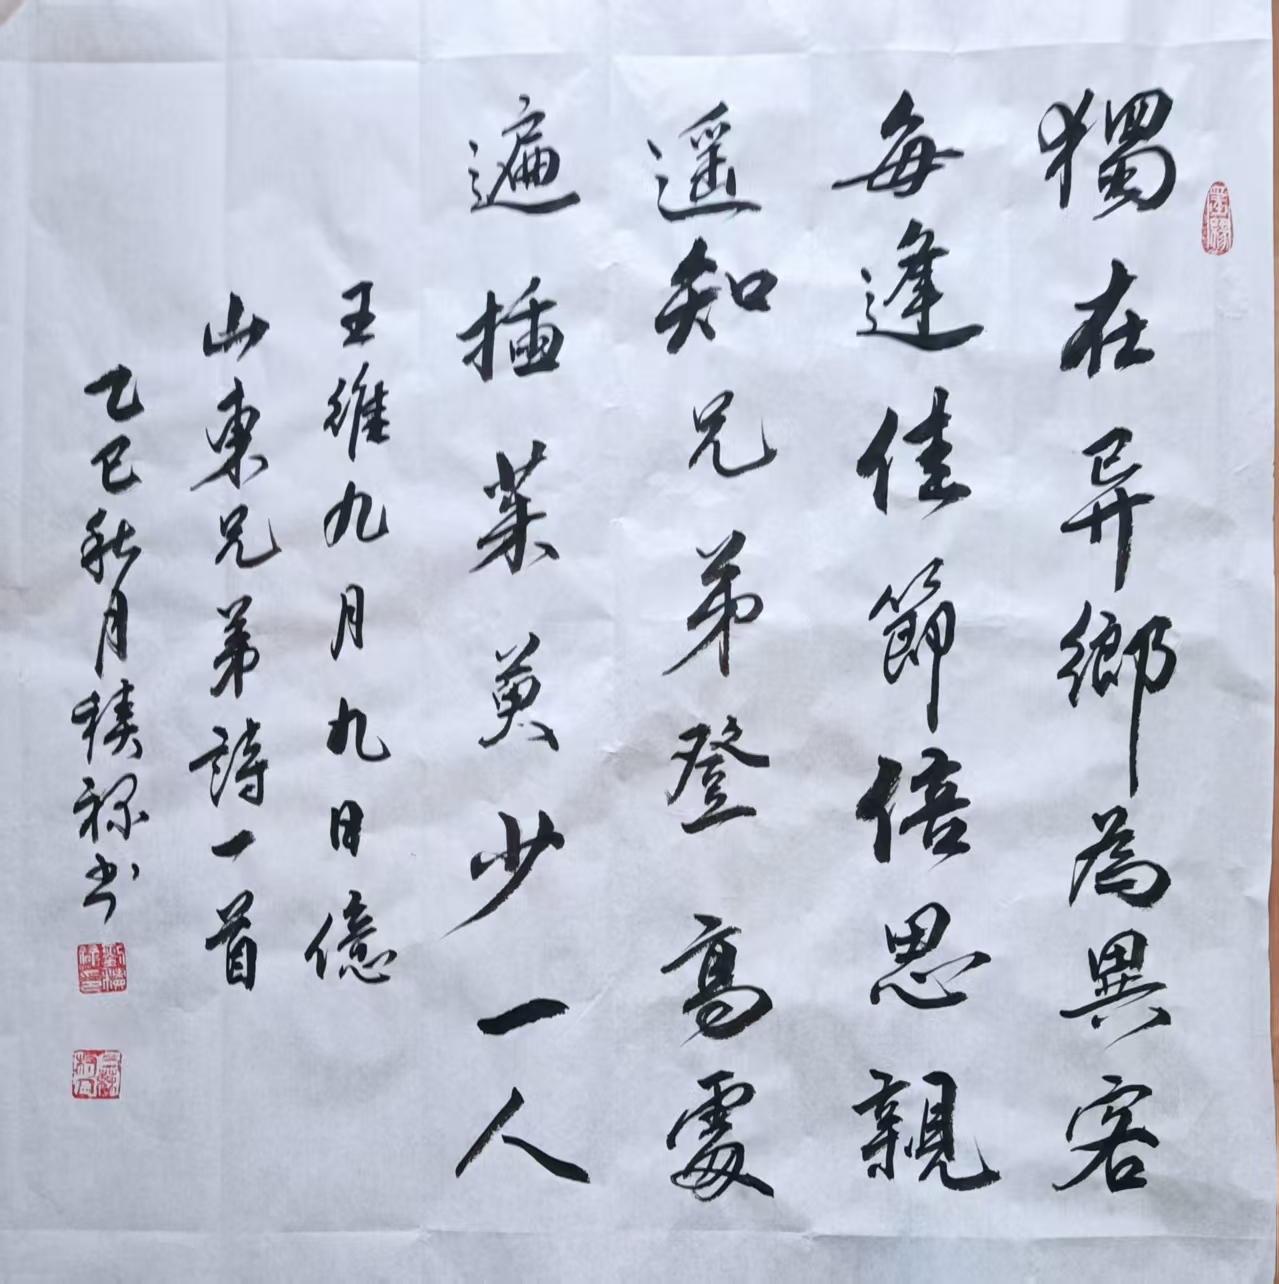 獨在异鄉為異客
每逢佳節倍思親
遥知兄弟登高處
遍插茱萸少一人
王維九月九日億
山東兄弟詩一首
乙巳秋月 书